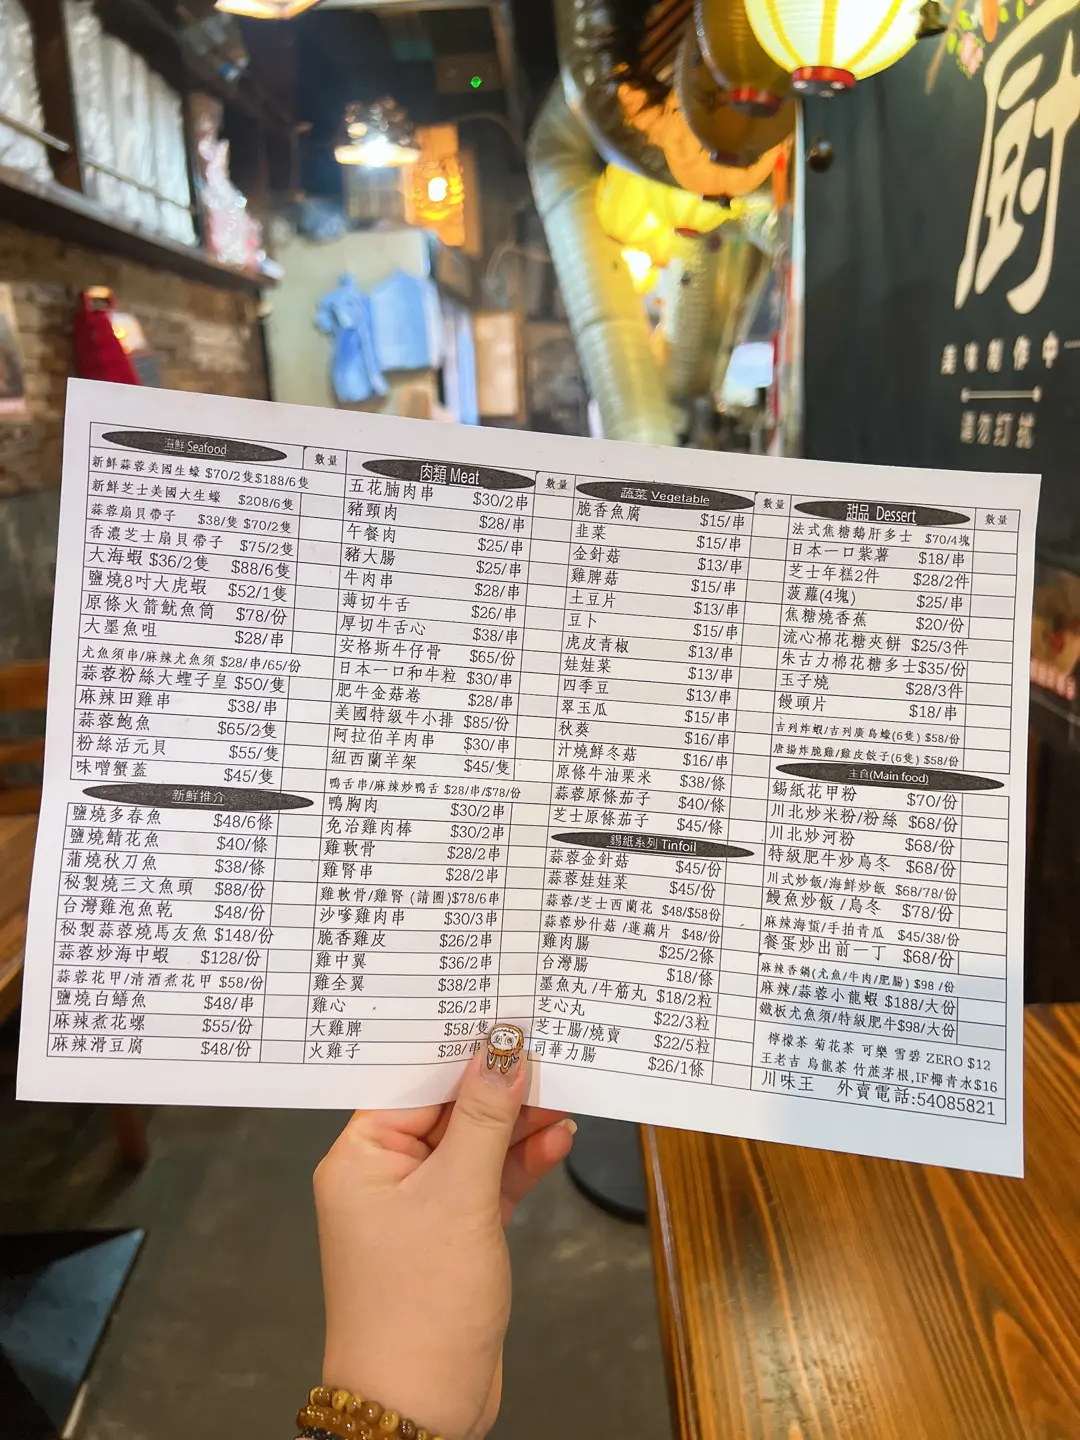 厨
美味制作中
請勿打扰
海鮮 Seafood 數量
新鮮蒜蓉美國生蠔 $70/2隻$188/6隻
新鮮芝士美國大生蠔 $208/6隻
蒜蓉扇貝帶子 $38/隻 $70/2隻
香濃芝士扇貝帶子 $75/2隻
大海蝦 $36/2隻 $88/6隻
鹽燒8吋大虎蝦 $52/1隻
原條火箭魷魚筒 $78/份
大墨魚咀 $28/串
尤魚須串/麻辣尤魚須 $28/串/65/份
蒜蓉粉絲大蟶子皇 $50/隻
麻辣田雞串 $38/串
蒜蓉鮑魚 $65/2隻
粉絲活元貝 $55/隻
味噌蟹蓋 $45/隻
新鮮推介
鹽燒多春魚 $48/6條
鹽燒鯖花魚 $40/條
蒲燒秋刀魚 $38/條
秘製燒三文魚頭 $88/份
台灣雞泡魚乾 $48/份
秘製蒜蓉燒馬友魚 $148/份
蒜蓉炒海中蝦 $128/份
蒜蓉花甲/清酒煮花甲 $58/份
鹽燒白鱔魚 $48/串
麻辣煮花螺 $55/份
麻辣滑豆腐 $48/份
肉類 Meat 數量
五花腩肉串 $30/2串
豬頸肉 $28/串
午餐肉 $25/串
豬大腸 $25/串
牛肉串 $28/串
薄切牛舌 $26/串
厚切牛舌心 $38/串
安格斯牛仔骨 $65/份
日本一口和牛粒 $30/串
肥牛金菇卷 $28/串
美國特級牛小排 $85/份
阿拉伯羊肉串 $30/串
紐西蘭羊架 $45/隻
鴨舌串/麻辣炒鴨舌 $28/串/$78/份
鴨胸肉 $30/2串
免治雞肉棒 $30/2串
雞軟骨 $28/2串
雞腎串 $28/2串
雞軟骨/雞腎 (請圈)$78/6串
沙嗲雞肉串 $30/3串
脆香雞皮 $26/2串
雞中翼 $36/2串
雞全翼 $38/2串
雞心 $26/2串
大雞脾 $58/隻
火雞子 $28/串
蔬菜 Vegetable 數量
脆香魚腐 $15/串
韭菜 $15/串
金針菇 $13/串
雞脾菇 $15/串
土豆片 $13/串
豆卜 $15/串
虎皮青椒 $13/串
娃娃菜 $13/串
四季豆 $13/串
翠玉瓜 $15/串
秋葵 $16/串
汁燒鮮冬菇 $16/串
原條牛油粟米 $38/條
蒜蓉原條茄子 $40/條
芝士原條茄子 $45/條
錫紙系列 Tinfoil
蒜蓉金針菇 $45/份
蒜蓉娃娃菜 $45/份
蒜蓉/芝士西蘭花 $48/$58份
蒜蓉炒什菇 /蓮藕片 $48/份
雞肉腸 $25/2條
台灣腸 $18/條
墨魚丸 /牛筋丸 $18/2粒
芝心丸 $22/3粒
芝士腸/燒賣 $22/5粒
司華力腸 $26/1條
甜品 Dessert 數量
法式焦糖鵝肝多士 $70/4塊
日本一口紫薯 $18/串
芝士年糕2件 $28/2件
菠蘿(4塊) $25/串
焦糖燒香蕉 $20/份
流心棉花糖夾餅 $25/3件
朱古力棉花糖多士$35/份
玉子燒 $28/3件
饅頭片 $18/串
吉列炸蝦/吉列廣島蠔(6隻) $58/份
唐揚炸脆雞/雞皮餃子(6隻) $58/份
主食(Main food)
錫紙花甲粉 $70/份
川北炒米粉/粉絲 $68/份
川北炒河粉 $68/份
特級肥牛炒烏冬 $68/份
川式炒飯/海鮮炒飯 $68/78/份
鰻魚炒飯 /烏冬 $78/份
麻辣海蜇/手拍青瓜 $45/38/份
餐蛋炒出前一丁 $68/份
麻辣香鍋(尤魚/牛肉/肥腸) $98 /份
麻辣/蒜蓉小龍蝦 $188/大份
鐵板尤魚須/特級肥牛$98/大份
檸檬茶 菊花茶 可樂 雪碧 ZERO $12
王老吉 烏龍茶 竹蔗茅根,IF椰青水$16
川味王 外賣電話:54085821